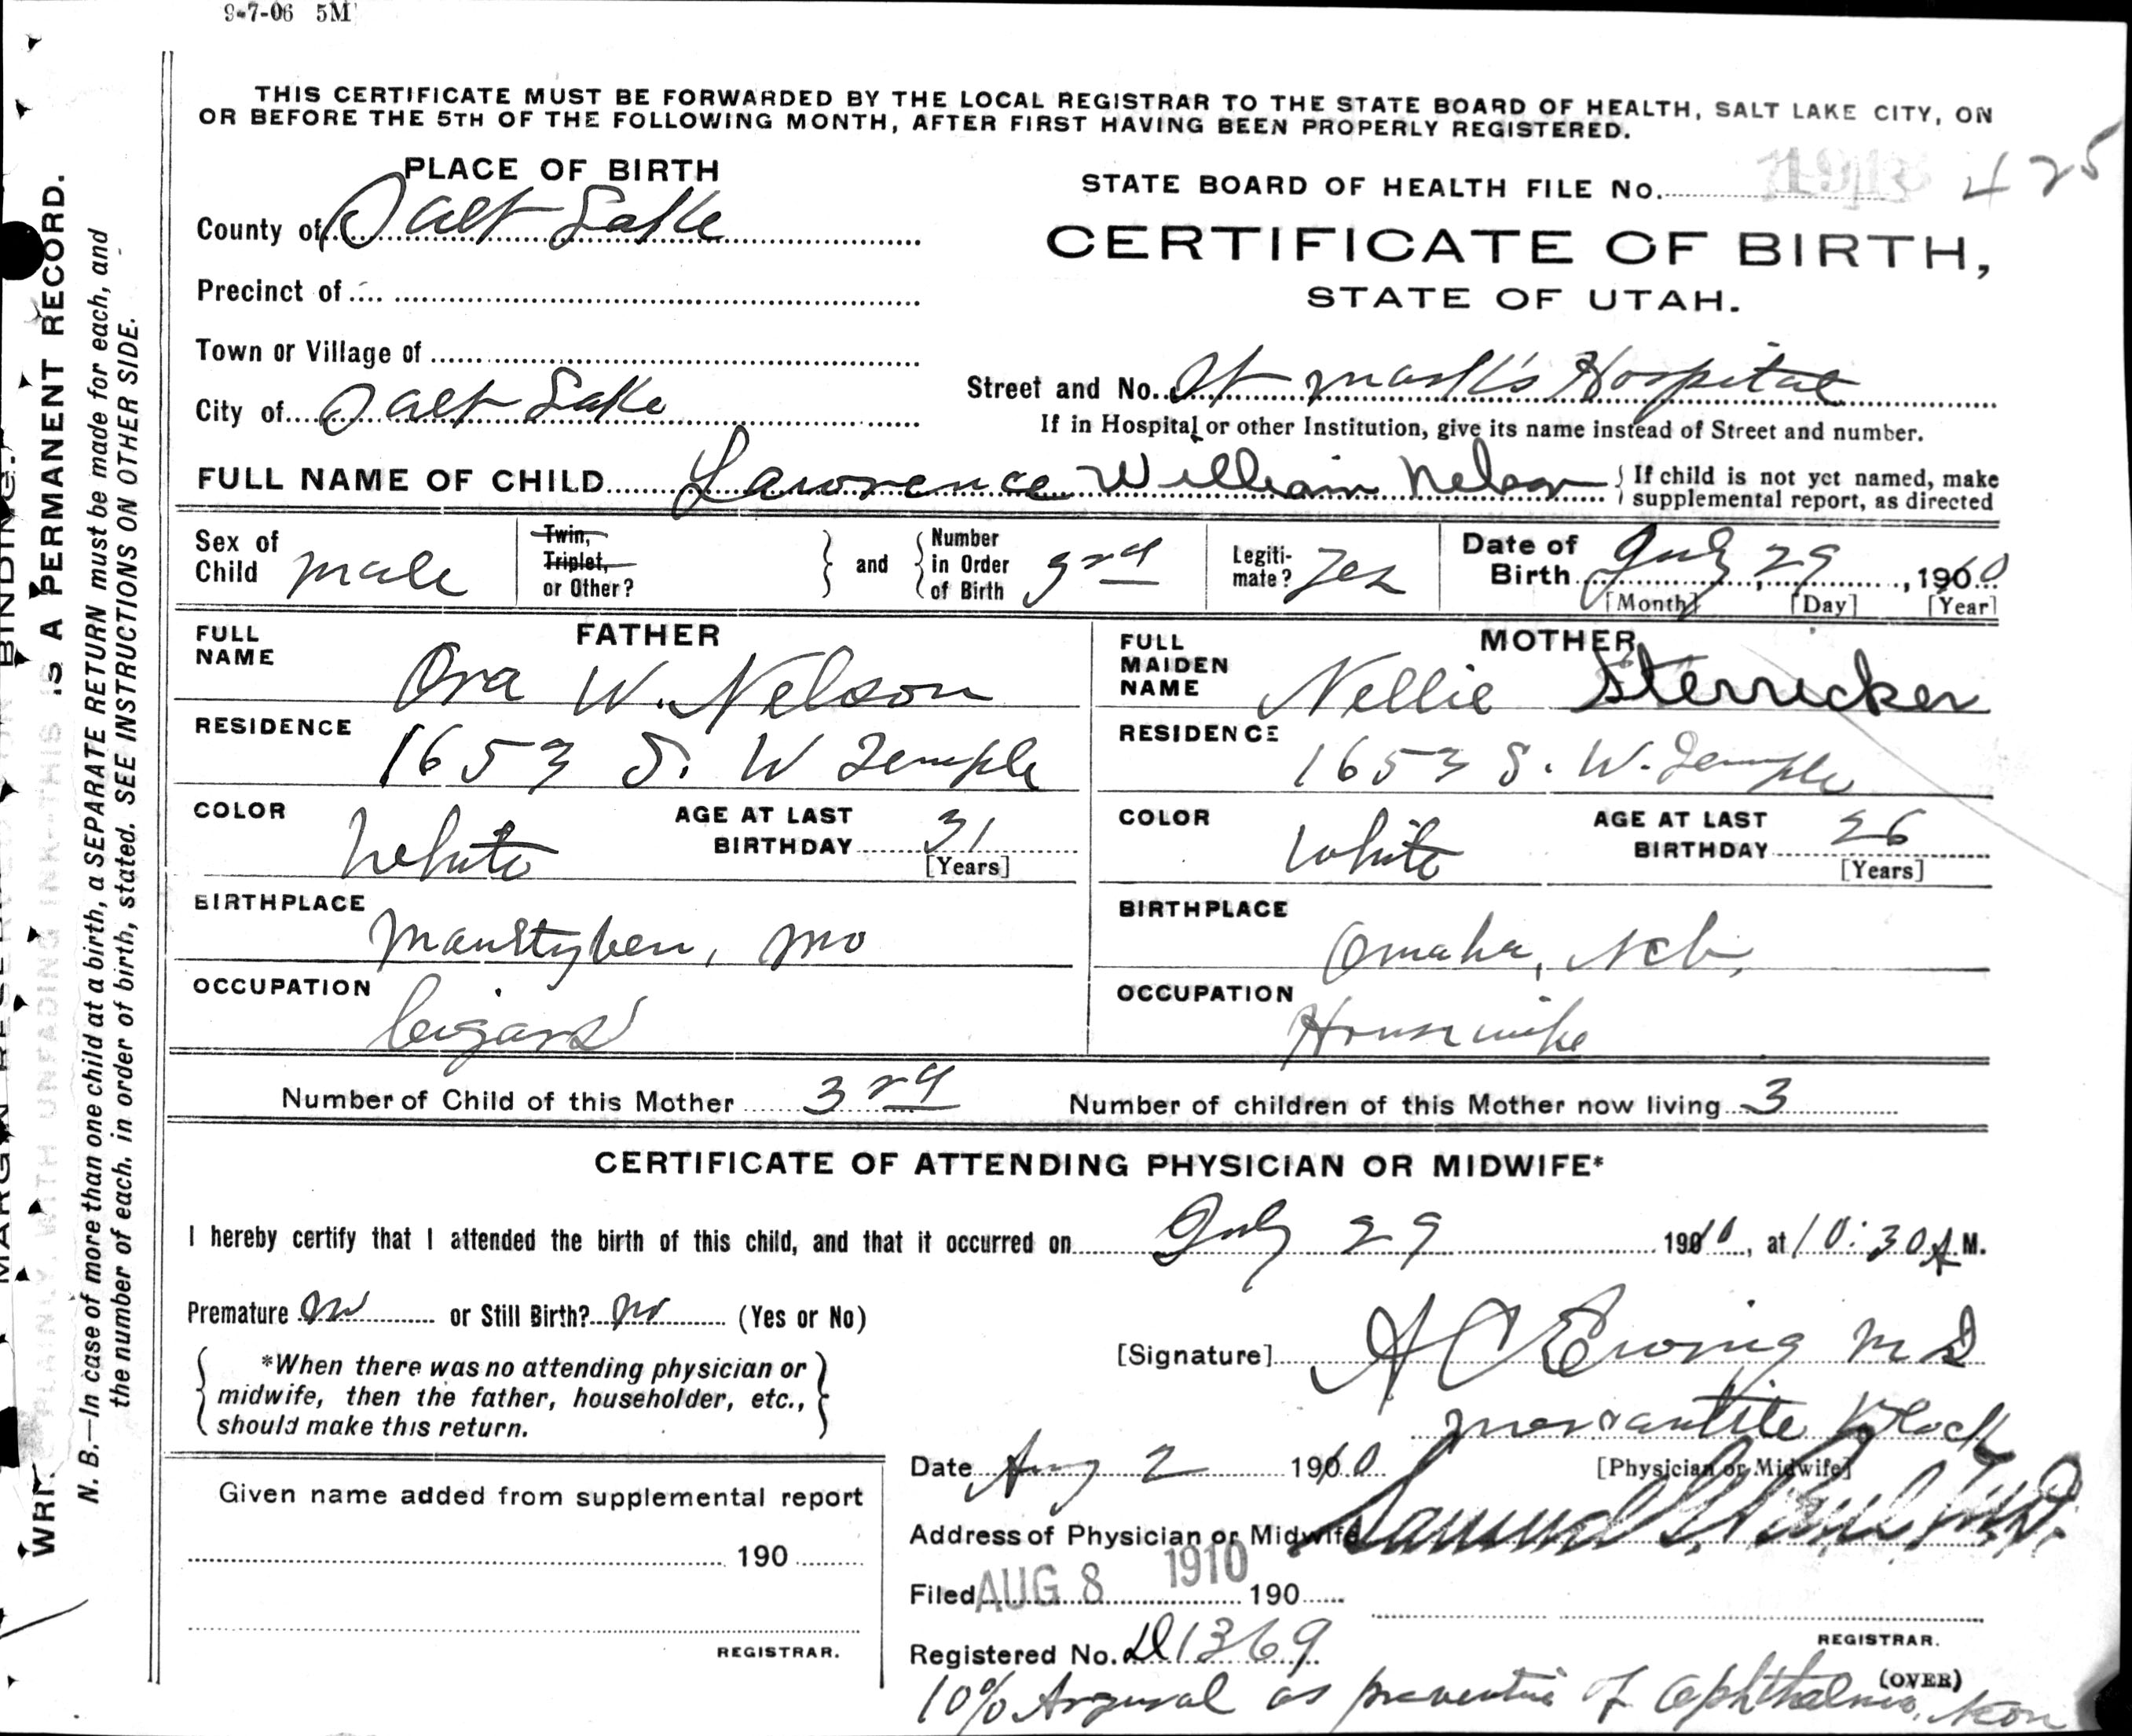 9-7-06 5M
THIS CERTIFICATE MUST BE FORWARDED BY THE LOCAL REGISTRAR TO THE STATE BOARD OF HEALTH, SALT LAKE CITY, ON
OR BEFORE THE 5TH OF THE FOLLOWING MONTH, AFTER FIRST HAVING BEEN PROPERLY REGISTERED.
PLACE OF BIRTH
STATE BOARD OF HEALTH FILE No. 425
County of Salt Lake
CERTIFICATE OF BIRTH,
Precinct of
STATE OF UTAH.
Town or Village of
City of Salt Lake
Street and No. St Mark's Hospital
If in Hospital or other Institution, give its name instead of Street and number.
FULL NAME OF CHILD Lawrence William Nelson { If child is not yet named, make
supplemental report, as directed
Sex of Child male
Twin, Triplet, or Other? } and { Number in Order of Birth 3rd
Legiti-mate? Yes
Date of Birth July 29, 1900
[Month] [Day] [Year]
FATHER
FULL NAME Ora W. Nelson
RESIDENCE 1653 S. W Temple
COLOR White AGE AT LAST BIRTHDAY 31
[Years]
BIRTHPLACE Mo
OCCUPATION Cigars
MOTHER
FULL MAIDEN NAME Nellie Sterricker
RESIDENCE 1653 S. W. Temple
COLOR White AGE AT LAST BIRTHDAY 26
[Years]
BIRTHPLACE Omaha, Neb,
OCCUPATION Housewife
Number of Child of this Mother 3rd Number of children of this Mother now living 3
CERTIFICATE OF ATTENDING PHYSICIAN OR MIDWIFE*
I hereby certify that I attended the birth of this child, and that it occurred on July 29 1910, at 10:30 A.M.
Premature no or Still Birth? no (Yes or No)
*When there was no attending physician or
midwife, then the father, householder, etc.,
should make this return.
[Signature] A C Ewing M D
Mercantile Block
Date Aug 2 1910 [Physician or Midwife]
Address of Physician or Midwife Samuel
Filed AUG 8 1910 190
REGISTRAR.
Registered No. 1369
(OVER)
10% Argyrol as preventive of Ophthalmia,
Given name added from supplemental report
190
REGISTRAR.
N. B.—In case of more than one child at a birth, a SEPARATE RETURN must be made for each, and
the number of each, in order of birth, stated. SEE INSTRUCTIONS ON OTHER SIDE.
IS A PERMANENT RECORD.